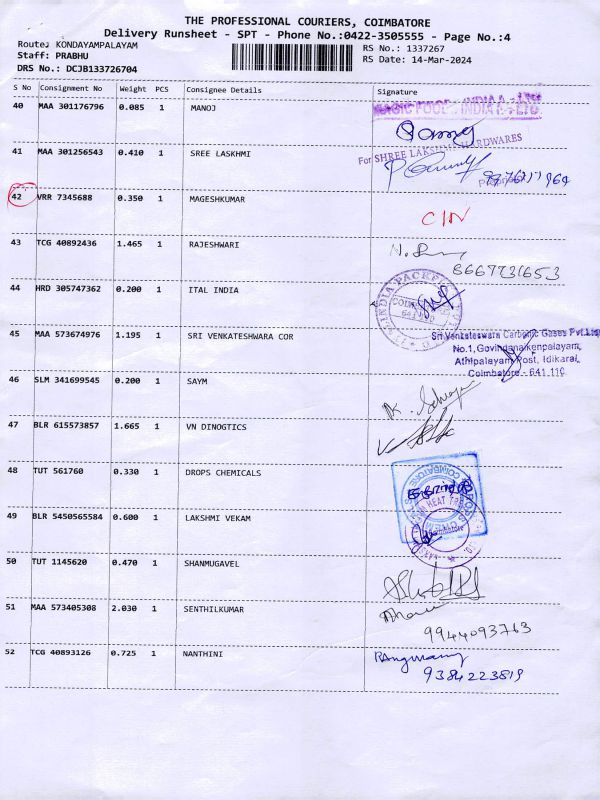 THE PROFESSIONAL COURIERS, COIMBATORE
Delivery Runsheet - SPT - Phone No.:0422-3505555 - Page No.:4
Route: KONDAYAMPALAYAM
RS No.: 1337267
Staff: PRABHU
RS Date: 14-Mar-2024
DRS No.: DCJB133726704
S No Consignment No Weight PCS Consignee Details Signature
40 MAA 301176796 0.085 1 MANOJ
41 MAA 301256543 0.410 1 SREE LASKHMI
For SHREE LAKSHMI HARDWARES
42 VRR 7345688 0.350 1 MAGESHKUMAR
CIN
43 TCG 40892436 1.465 1 RAJESHWARI
8667731653
44 HRD 305747362 0.200 1 ITAL INDIA
45 MAA 573674976 1.195 1 SRI VENKATESHWARA COR
Sri Venkateswara Carbonic Gases Pvt.Ltd
No.1, Govindanaickenpalayam,
Athipalayam Post, Idikarai,
Coimbatore - 641 110
46 SLM 341699545 0.200 1 SAYM
47 BLR 615573857 1.665 1 VN DINOGTICS
48 TUT 561760 0.330 1 DROPS CHEMICALS
49 BLR 5450565584 0.600 1 LAKSHMI VEKAM
50 TUT 1145620 0.470 1 SHANMUGAVEL
51 MAA 573405308 2.030 1 SENTHILKUMAR
9944093763
52 TCG 40893126 0.725 1 NANTHINI
9384223819